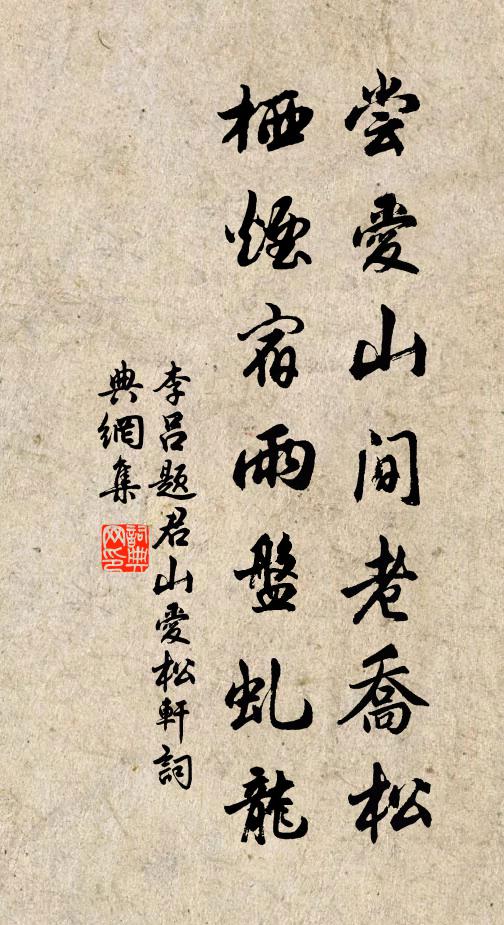 尝爱山间老乔松
栖烟宿雨盘虬龙
李吕题君山爱松轩词
典网集
词典网印